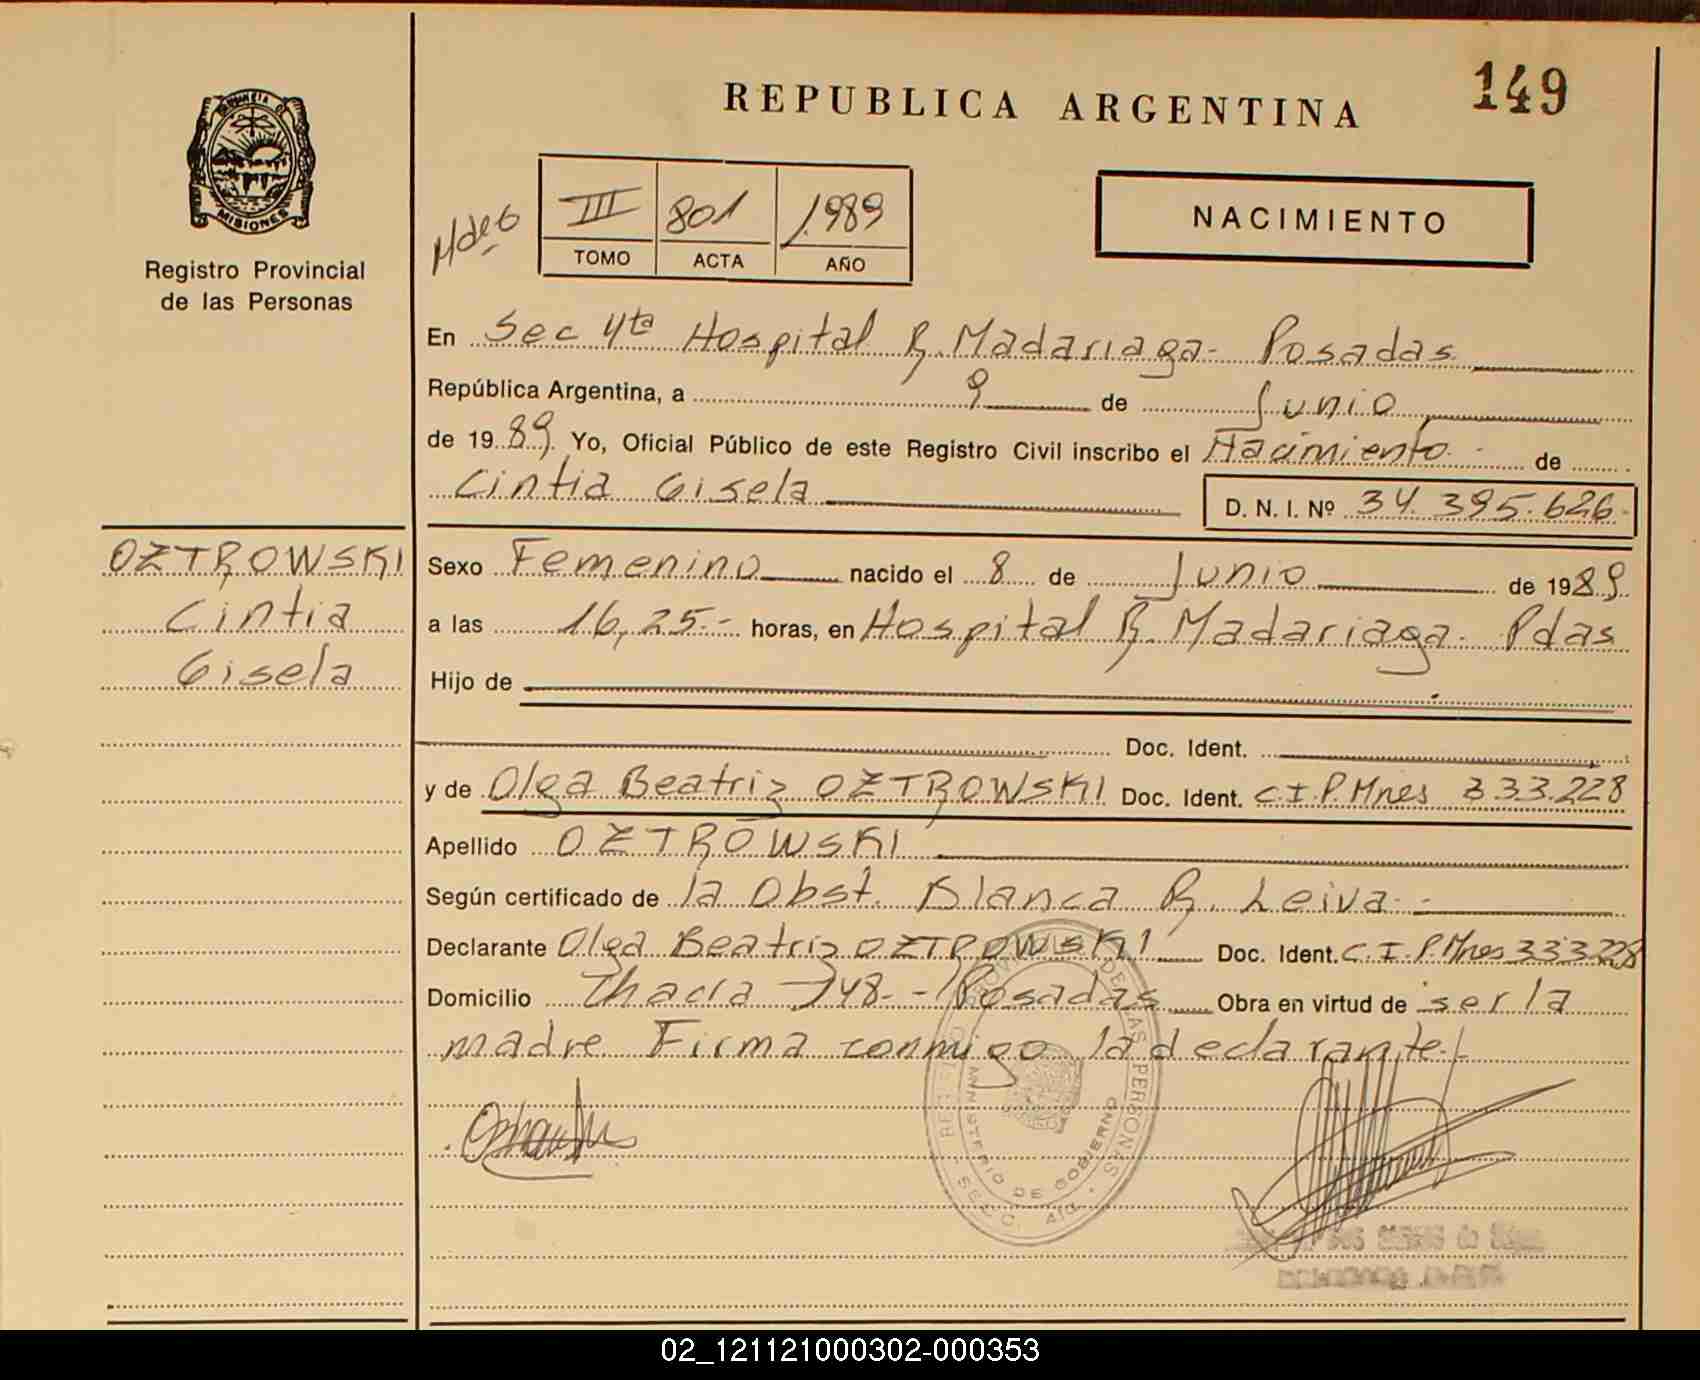 REPUBLICA ARGENTINA
149
PROVINCIA D
MISIONES
Registro Provincial
de las Personas
III 801 1989
TOMO ACTA AÑO
NACIMIENTO
En Sec 4ta Hospital R. Madariaga - Posadas
República Argentina, a 9 de Junio
de 1989 Yo, Oficial Público de este Registro Civil inscribo el Nacimiento de
Cintia Gisela
D. N. I. Nº 34.395.626
OZTROWSKI
Cintia
Gisela
Sexo Femenino nacido el 8 de Junio de 1989
a las 16,25.- horas, en Hospital R. Madariaga. Pdas
Hijo de
Doc. Ident.
y de Olga Beatriz OZTROWSKI Doc. Ident. C.I.P.Mnes 333.228
Apellido OZTROWSKI
Según certificado de la Obst. Blanca R. Leiva.-
Declarante Olga Beatriz OZTROWSKI Doc. Ident. C.I.P.Mnes 333.228
Domicilio Chacra 148.- Posadas Obra en virtud de ser la
madre Firma conmigo la declarante./
PERSONAS
MINISTERIO DE GOBIERNO
SECC. 4ta.
02_121121000302-000353